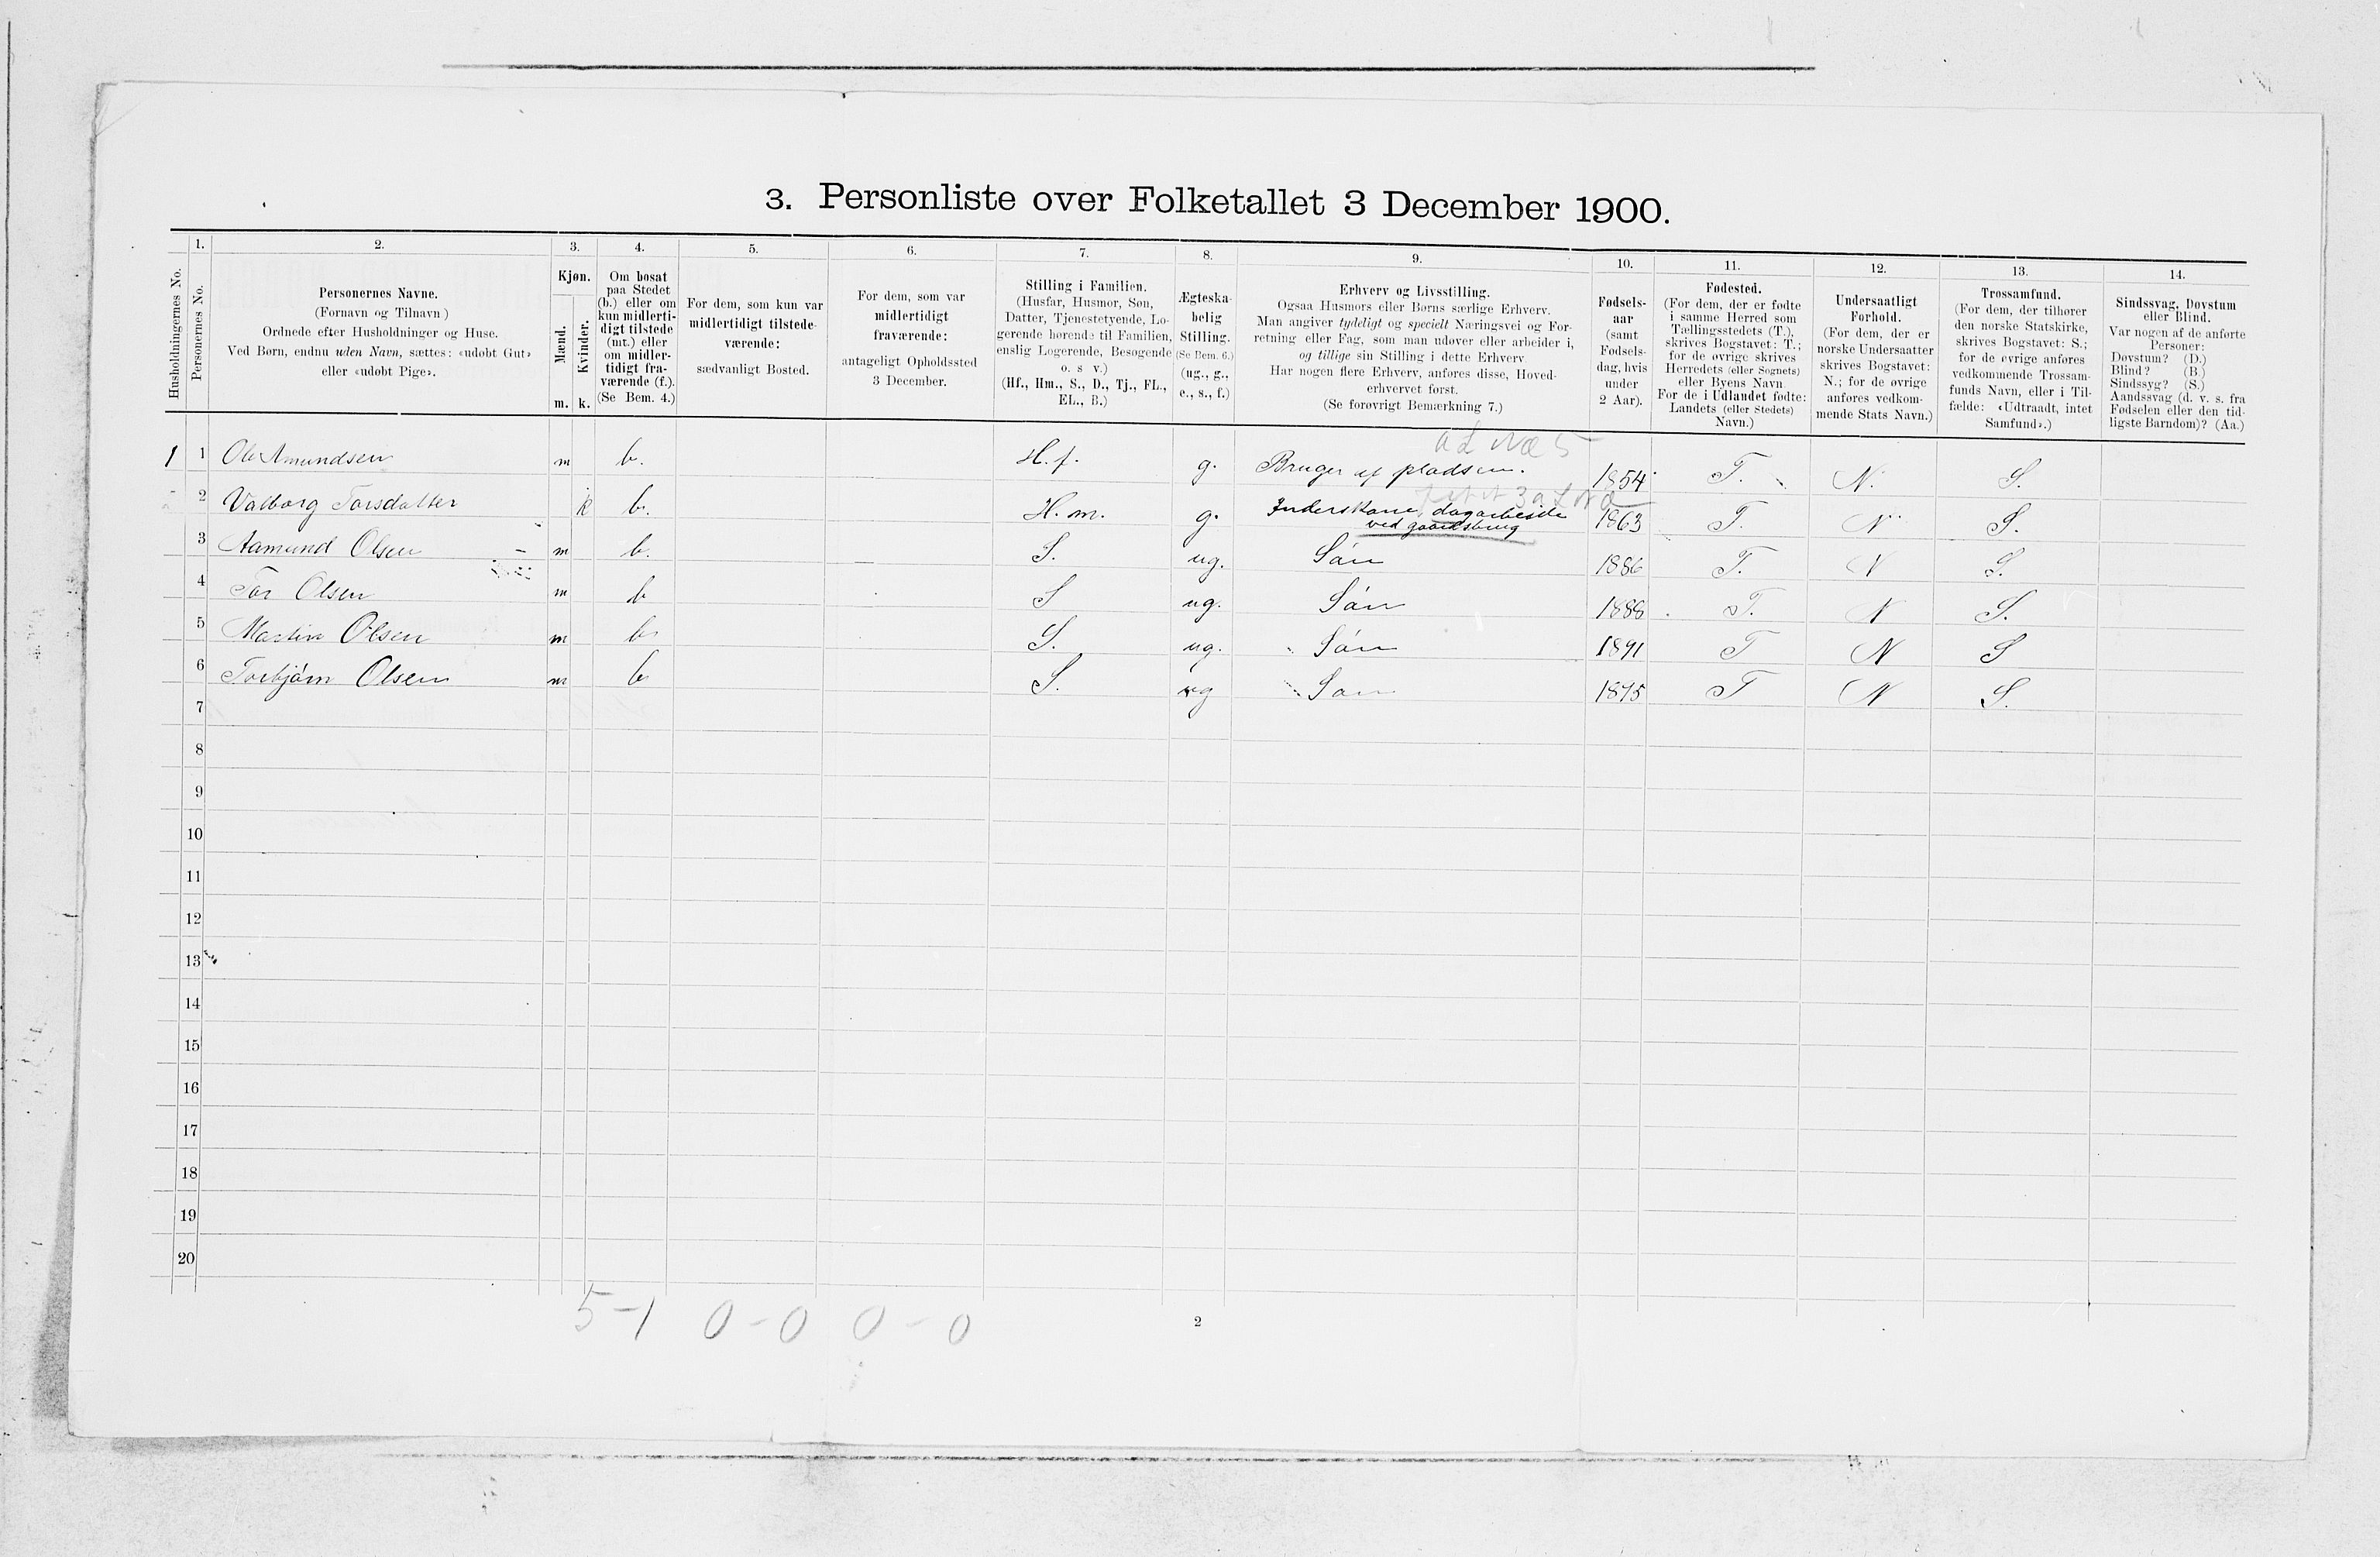 3. Personliste over Folketallet 3 December 1900.
Husholdningernes No.
1.
Personernes No.
2.
Personernes Navne.
(Fornavn og Tilnavn)
Ordnede efter Husholdninger og Huse.
Ved Børn, endnu uden Navn, sættes: «udøbt Gut»
eller «udøbt Pige».
3.
Kjøn.
Mænd.
Kvinder.
m. k.
4.
Om bosat
paa Stedet
(b.) eller om
kun midlerti-
digt tilstede
(mt.) eller
om midler-
tidigt fra-
værende (f.).
(Se Bem. 4.)
5.
For dem, som kun var
midlertidigt tilstede-
værende:
sædvanligt Bosted.
6.
For dem, som var
midlertidigt
fraværende:
antageligt Opholdssted
3 December.
7.
Stilling i Familien.
(Husfar, Husmor, Søn,
Datter, Tjenestetyende, Lo-
gerende hørende til Familien,
enslig Logerende, Besøgende
o. s v.)
(Hf., Hm., S., D., Tj., FL.,
EL., B.)
8.
Ægteska-
belig
Stilling.
(Se Bem. 6.)
(ug., g.,
e., s., f.)
9.
Erhverv og Livsstilling.
Ogsaa Husmørs eller Børns særlige Erhverv.
Man angiver tydeligt og specielt Næringsvei og For-
retning eller Fag, som man udøver eller arbeider i,
og tillige sin Stilling i dette Erhverv
Har nogen flere Erhverv, anføres disse, Hoved-
erhvervet først.
(Se forøvrigt Bemærkning 7.)
10.
Fødsels-
aar
(samt
Fødsels-
dag, hvis
under
2 Aar).
11.
Fødested.
(For dem, der er fødte
i samme Herred som
Tællingsstedets (T.),
skrives Bogstavet: T.;
for de øvrige skrives
Herredets (eller Sognets)
eller Byens Navn
For de i Udlandet fødte:
Landets (eller Stedets)
Navn.)
12.
Undersaatligt
Forhold.
(For dem, der er
norske Undersaatter
skrives Bogstavet:
N.; for de øvrige
anføres vedkom-
mende Stats Navn.)
13.
Trossamfund.
(For dem, der tilhører
den norske Statskirke,
skrives Bogstavet: S.;
for de øvrige anføres
vedkommende Trossam-
funds Navn, eller i Til-
fælde: «Udtraadt, intet
Samfund».)
14.
Sindssvag, Døvstum
eller Blind.
Var nogen af de anførte
Personer:
Døvstum? (D.)
Blind? (B.)
Sindssyg? (S.)
Aandssvag (d. v. s. fra
Fødselen eller den tid-
ligste Barndom)? (Aa.)
1 1 Ole Amundsen m b. H.f. g. Bruger af pladsen. 1854 T. N. S.
2 Valborg Torsdatter k b. H.m. g. Inderskone, dagarbeide 1863 T. N S.
ved gaardsbrug
3 Aamund Olsen m b. S. ug. Sön 1886 T. N S.
4 Tor Olsen m b S ug. Sön 1888 T. N S.
5 Martin Olsen m b S. ug. Sön 1891 T N S
6 Torbjörn Olsen m b S. ug Sön 1895 T N S.
7
8
9
10
11
12
13
14
15
16
17
18
19
20
5-1 0-0 0-0
2